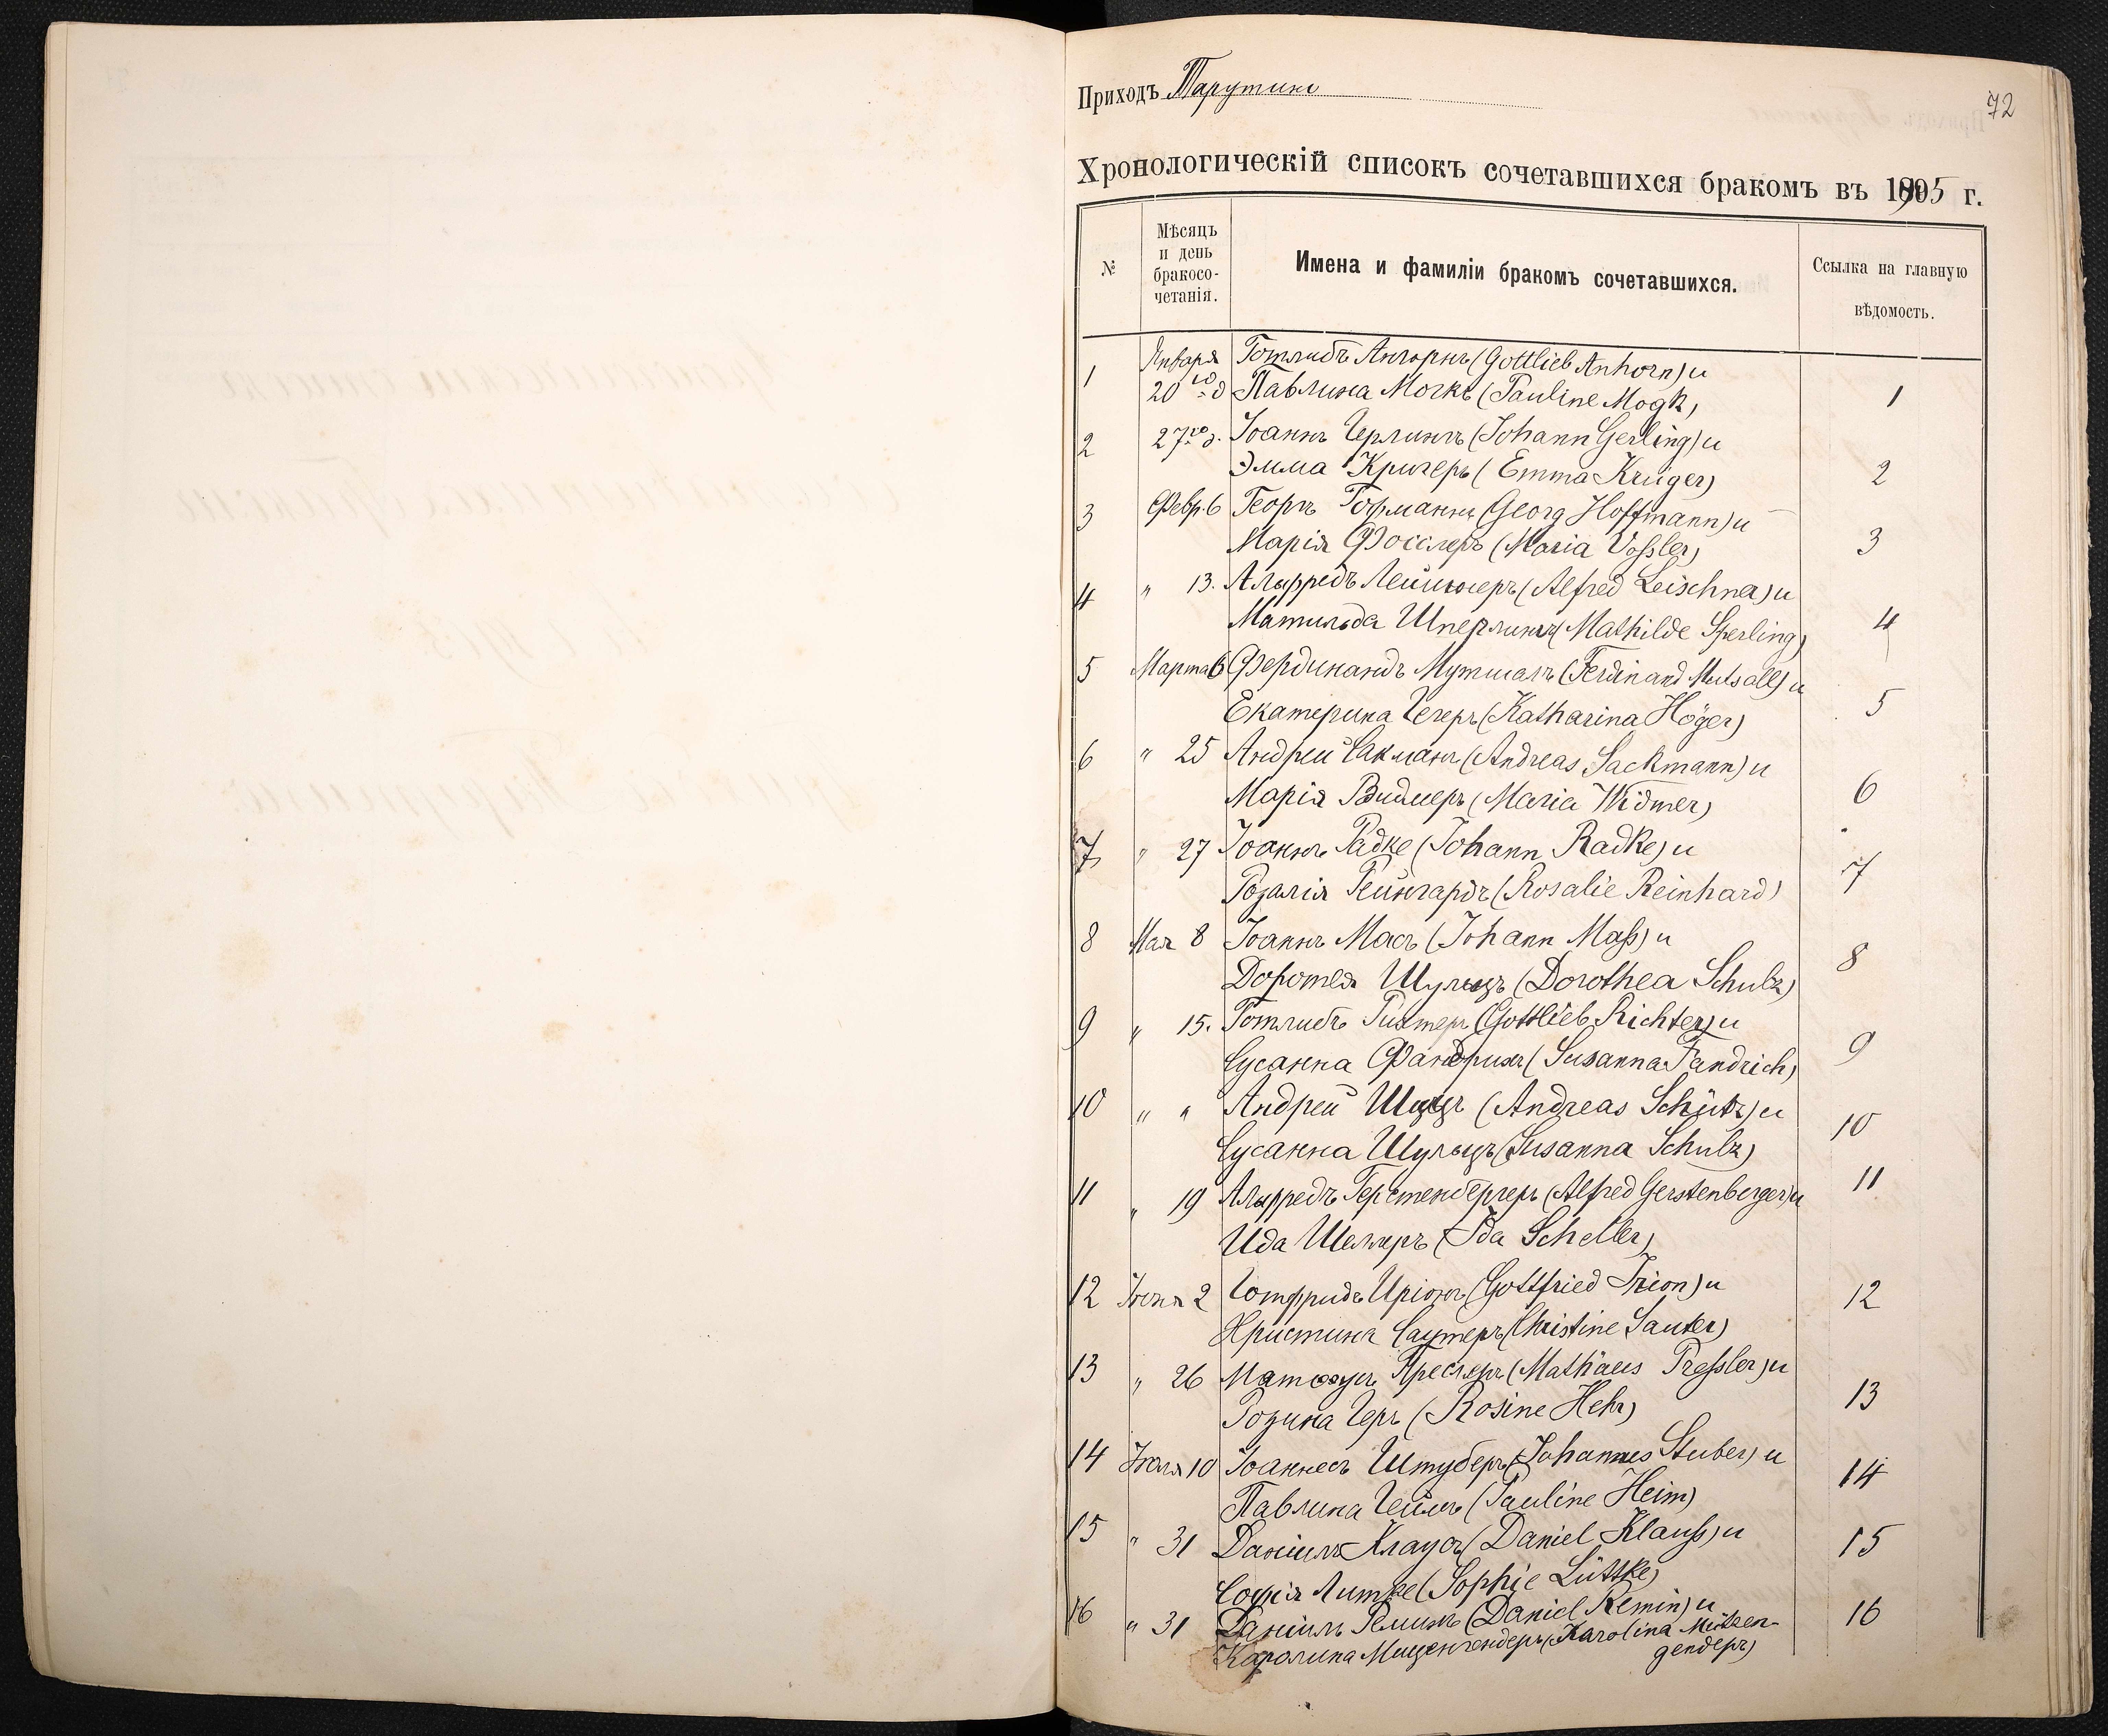 Приходъ Тарутино
72
Хронологическій списокъ сочетавшихся бракомъ въ 1905 г.
№
Мѣсяцъ
и день
бракосо-
четанія.
Имена и фамиліи бракомъ сочетавшихся.
Ссылка на главную
вѣдомость.
1 Января Готлибъ Ангорнъ (Gottlieb Anhorn) и
20го д Павлина Могкъ (Pauline Mogk) 1
2 27го д. Іоаннъ Герлингъ (Johann Gerling) и
Эмма Кригеръ (Emma Krüger) 2
3 Февр. 6 Георгъ Гофманнъ (Georg Hoffmann) и
Марія Фосслеръ (Maria Voßler) 3
4 " 13. Альфредъ Лейшнеръ (Alfred Leischner) и
Матильда Шперлингъ (Mathilde Sperling) 4
5 Марта 6 Фердинандъ Мутшалъ (Ferdinand Mutsall) и
Екатерина Гегеръ (Katharina Höger) 5
6 " 25 Андрей Сакманъ (Andreas Sackmann) и
Марія Видмеръ (Maria Widmer) 6
7 " 27 Іоаннъ Радке (Johann Radke) и
Розалія Рейнгардъ (Rosalie Reinhard) 7
8 Мая 8 Іоаннъ Масъ (Johann Maß) и
Доротея Шульцъ (Dorothea Schulz) 8
9 " 15. Готлибъ Рихтеръ (Gottlieb Richter) и
Сусанна Фандрихъ (Susanna Fandrich) 9
10 " " Андрей Шицъ (Andreas Schütz) и
Сусанна Шульцъ (Susanna Schulz) 10
11 " 19 Альфредъ Герстенбергеръ (Alfred Gerstenberger) и 11
Ида Шеллеръ (Ida Scheller)
12 Іюня 2 Готфридъ Иріонъ (Gottfried Irion) и 12
Христина Саутеръ (Christine Sauter)
13 " 26 Матеусъ Преслеръ (Mathäus Preßler) и
Розина Геръ (Rosine Hehr) 13
14 Іюля 10 Іоаннесъ Штуберъ (Johannes Stuber) и 14
Павлина Геймъ (Pauline Heim)
15 " 31 Даніилъ Клаусъ (Daniel Klauß) и 15
Софія Литке (Sophie Lüttke)
16 " 31 Даніилъ Реминъ (Daniel Remin) и 16
Каролина Миценгендеръ (Karolina Mützen-
гендеръ)